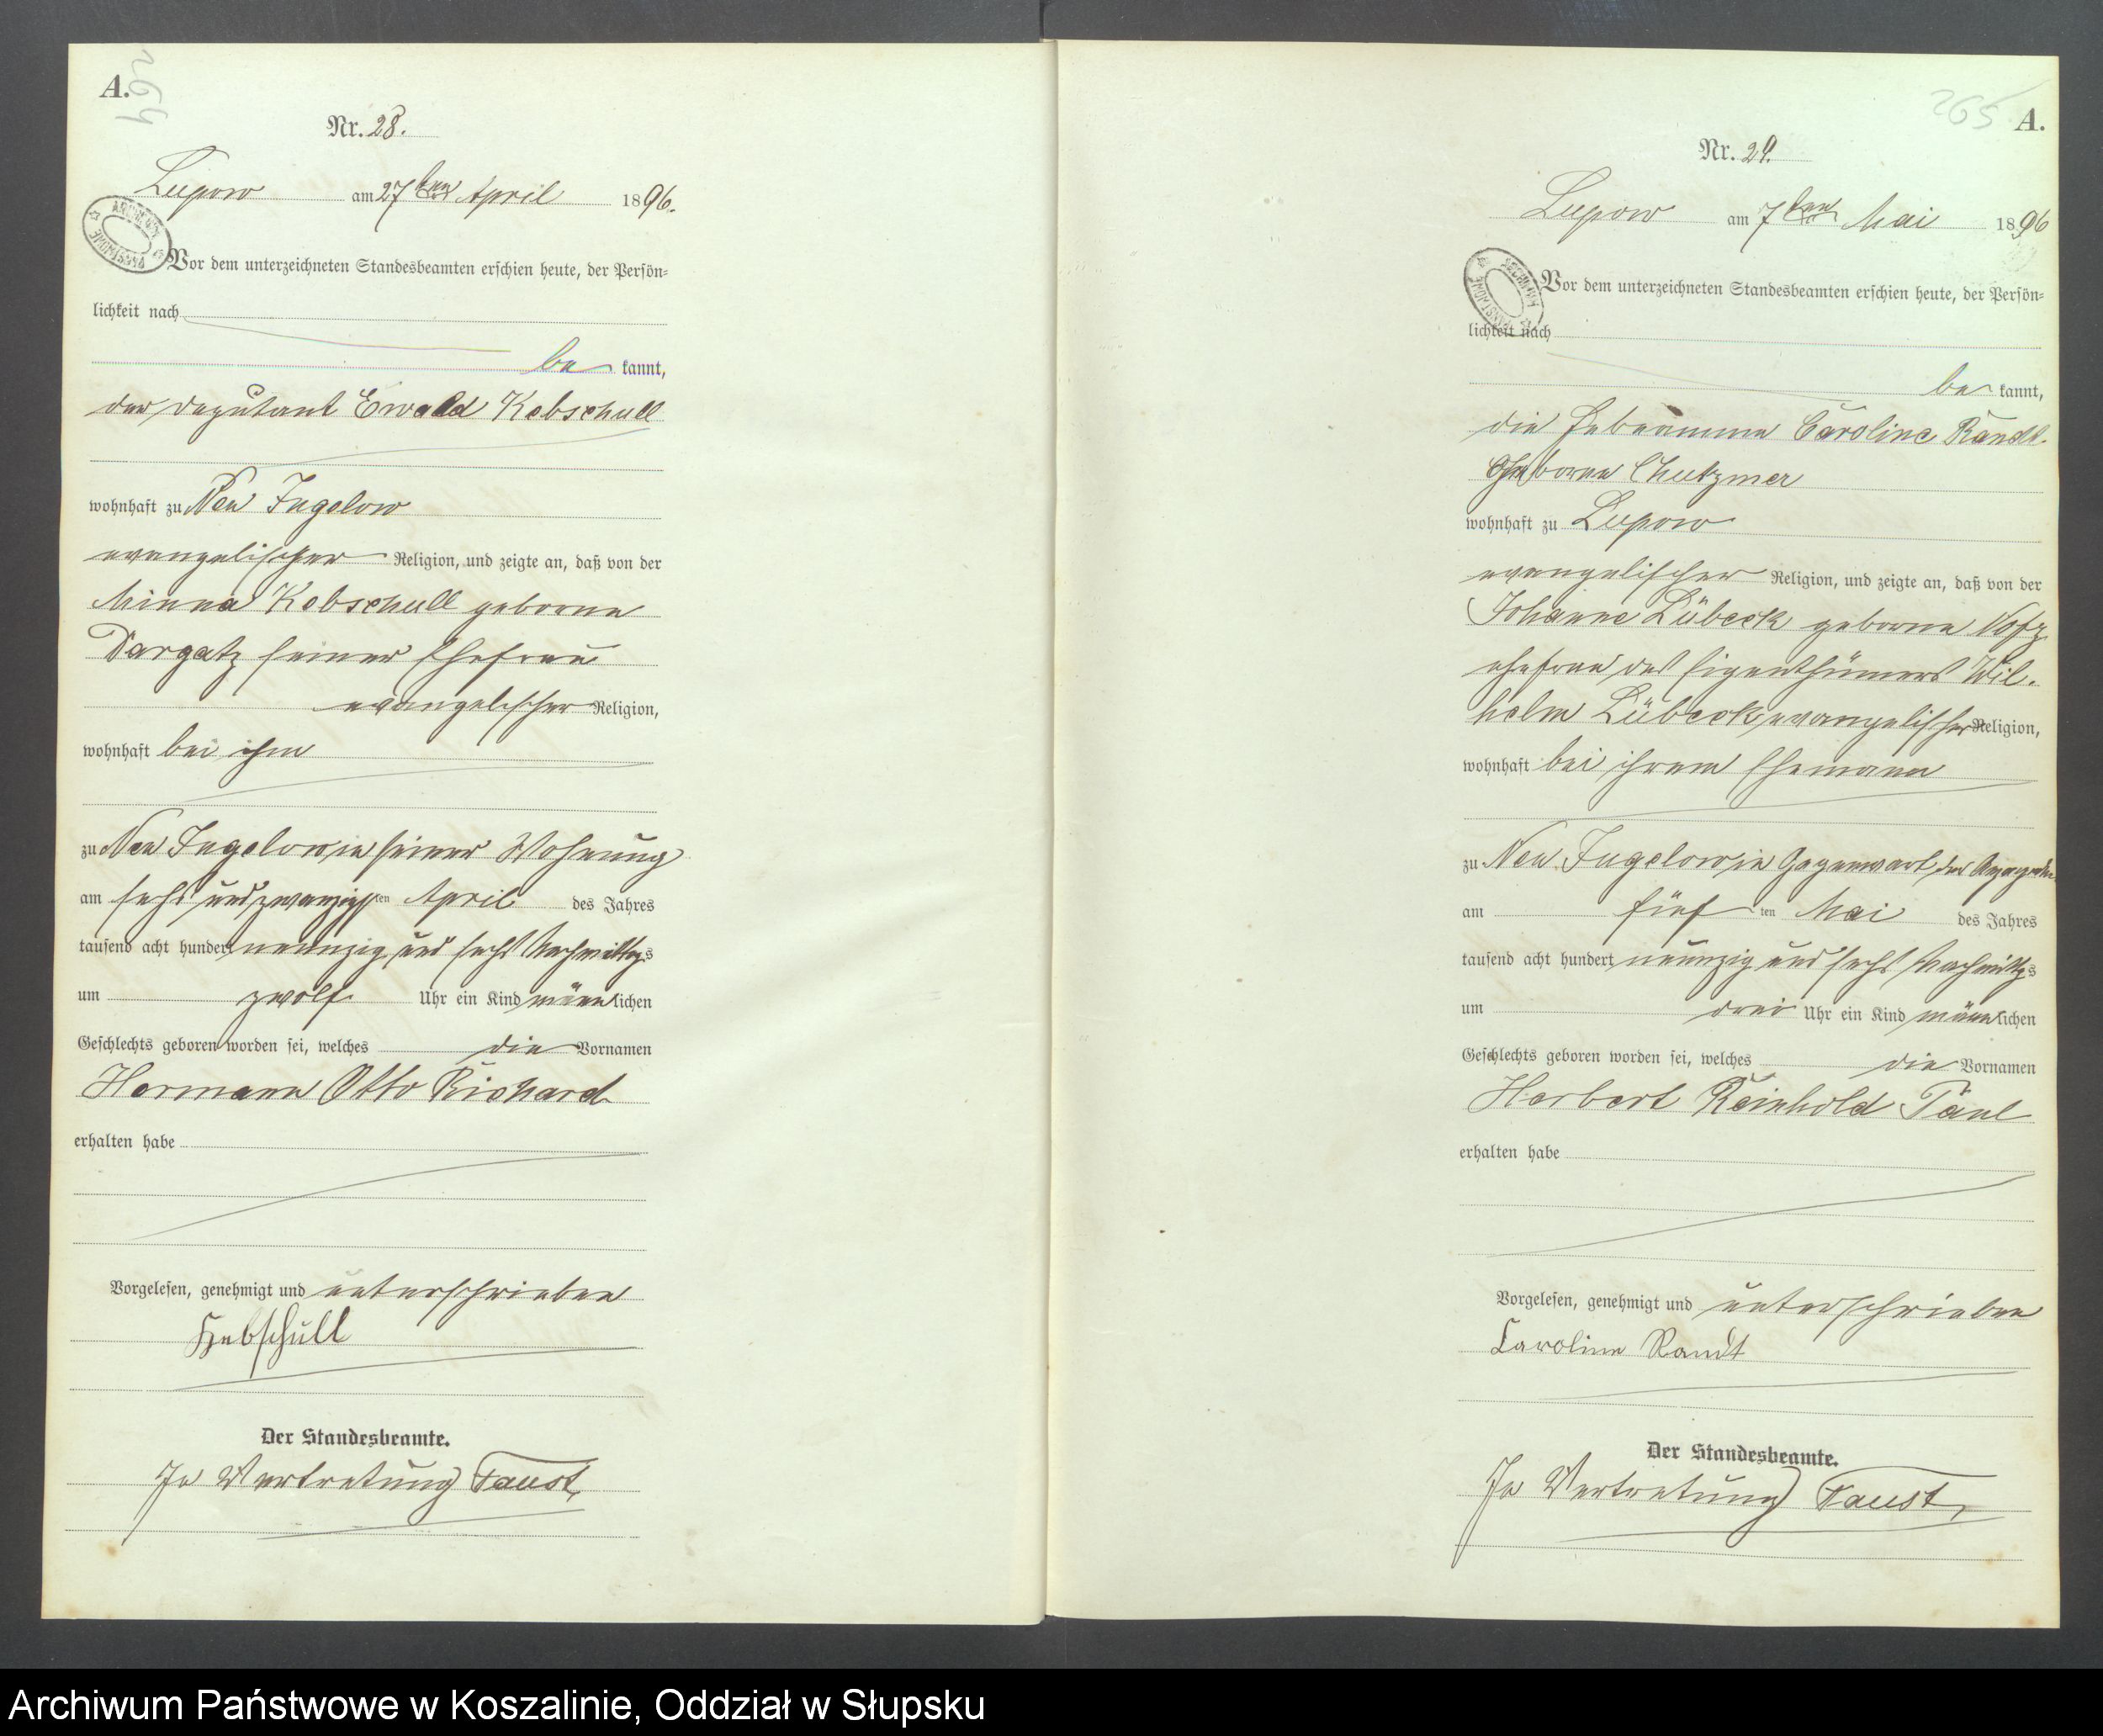 A.
264
Nr. 28.
Lupow am 27ten April 1896.
Vor dem unterzeichneten Standesbeamten erschien heute, der Persön=
lichkeit nach
be kannt,
der Deputant Ewald Kebschull
wohnhaft zu Neu Jugelow
evangelischer Religion, und zeigte an, daß von der
Minna Kebschull geborne
Dargatz seiner Ehefrau
evangelischer Religion,
wohnhaft bei ihm
zu Neu Jugelow in seiner Wohnung
am sechs und zwanzigsten April des Jahres
tausend acht hundert neunzig und sechs Nachmittags
um zwölf Uhr ein Kind männlichen
Geschlechts geboren worden sei, welches die Vornamen
Hermann Otto Richard
erhalten habe
Vorgelesen, genehmigt und unterschrieben
Kebschull
Der Standesbeamte.
In Vertretung Faust
265
A.
Nr. 29.
Lupow am 7ten Mai 1896
Vor dem unterzeichneten Standesbeamten erschien heute, der Persön=
lichkeit nach
be kannt,
die Hebeamme Caroline Randt
Geborne
wohnhaft zu Lupow
evangelischer Religion, und zeigte an, daß von der
Johanne Lübeck geborne
ehefrau des Eigenthümers Wil-
helm Lübeck, evangelischer Religion,
wohnhaft bei ihrem Ehemann
zu Neu Jugelow in Gegenwart der
am fünften Mai des Jahres
tausend acht hundert neunzig und sechs Nachmittags
um drei Uhr ein Kind männlichen
Geschlechts geboren worden sei, welches die Vornamen
Herbert Reinhold Paul
erhalten habe
Vorgelesen, genehmigt und unterschrieben
Caroline Randt
Der Standesbeamte.
In Vertretung Faust
Archiwum Państwowe w Koszalinie, Oddział w Słupsku